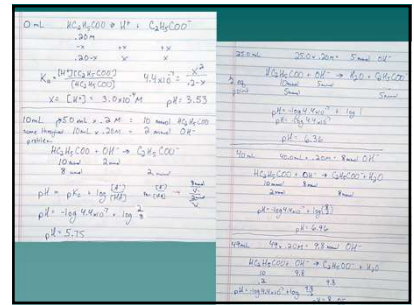 0 mL HC₂H₅COO → H⁺ + C₂H₅COO⁻
.20M
-x +x +x
.20-x x x
Kₐ = [H⁺][C₂H₅COO⁻] / [HC₂H₅COO] 4.4x10⁻⁷ = x² / .2
x = [H⁺] = 3.0x10⁻⁴ M pH = 3.53
10mL 50 mL x .2 M = 10 mmol HC₂H₅COO
10mL x .20M = 2 mmol OH⁻
problem
HC₂H₅COO + OH⁻ → C₂H₅COO⁻
10 mmol 2 mmol
8 mmol 2 mmol
pH = pKₐ + log
pH = -log 4.4x10⁻⁷ + log 2/8
pH = 5.75
25.0 mL 25.0 x .20M = 5 mmol OH⁻
HC₂H₅COO + OH⁻ → H₂O + C₂H₅COO⁻
10 mmol 5 mmol
5 mmol 5 mmol
pH = -log 4.4x10⁻⁷ + log 1
pH = -log 4.4x10⁻⁷
pH = 6.36
40 mL 40.0 mL x .20M = 8 mmol OH⁻
HC₂H₅COO + OH⁻ → C₂H₅COO⁻ + H₂O
10 mmol 8 mmol
2 mmol 8 mmol
pH = -log 4.4x10⁻⁷ + log (8/2)
pH = 6.96
49 mL 49 x .20M = 9.8 mmol OH⁻
HC₂H₅COO + OH⁻ → C₂H₅COO⁻ + H₂O
10 9.8
.2 9.8
pH = -log 4.4x10⁻⁷ + log 9.8/.2